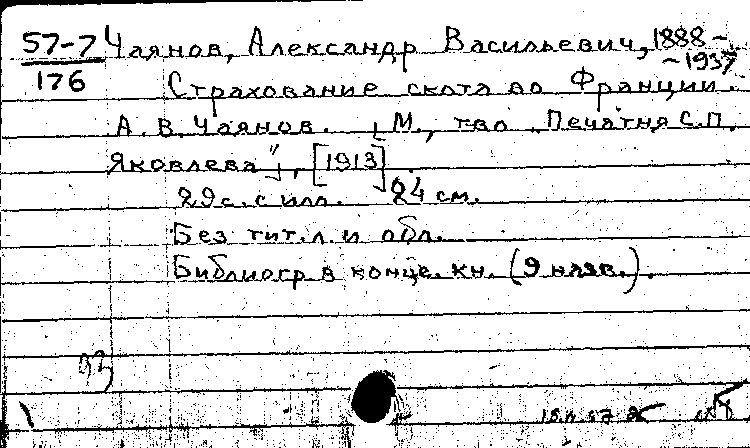 57-7 Чаянов, Александр Васильевич, 1888-
176 -1937
Страхование скота во Франции.
А. В. Чаянов. [М., тво "Печатня С.П.
Яковлева"], [1913].
29 с. с илл. 24 см.
Без тит. л. и обл.
Библиогр. в конце. кн. (9 назв.).